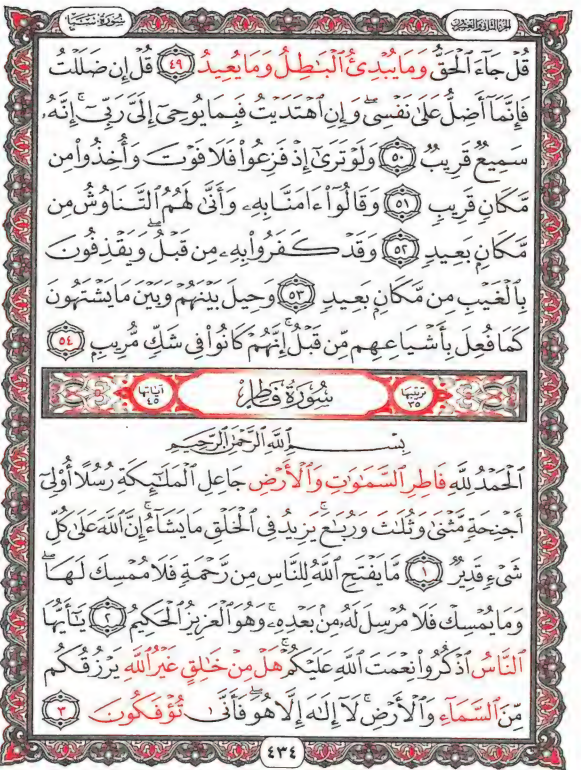 الجزء الثاني والعشرون
سُورَةُ سَبَإٍ
قُلْ جَآءَ ٱلْحَقُّ وَمَا يُبْدِئُ ٱلْبَٰطِلُ وَمَا يُعِيدُ ٤٩ قُلْ إِن ضَلَلْتُ
فَإِنَّمَآ أَضِلُّ عَلَىٰ نَفْسِىۖ وَإِنِ ٱهْتَدَيْتُ فَبِمَا يُوحِىٓ إِلَىَّ رَبِّىٓۚ إِنَّهُۥ
سَمِيعٌ قَرِيبٌ ٥٠ وَلَوْ تَرَىٰٓ إِذْ فَزِعُوا۟ فَلَا فَوْتَ وَأُخِذُوا۟ مِن
مَّكَانٍ قَرِيبٍ ٥١ وَقَالُوٓا۟ ءَامَنَّا بِهِۦ وَأَنَّىٰ لَهُمُ ٱلتَّنَاوُشُ مِن
مَّكَانٍۭ بَعِيدٍ ٥٢ وَقَدْ كَفَرُوا۟ بِهِۦ مِن قَبْلُۖ وَيَقْذِفُونَ
بِٱلْغَيْبِ مِن مَّكَانٍۭ بَعِيدٍ ٥٣ وَحِيلَ بَيْنَهُمْ وَبَيْنَ مَا يَشْتَهُونَ
كَمَا فُعِلَ بِأَشْيَاعِهِم مِّن قَبْلُۚ إِنَّهُمْ كَانُوا۟ فِى شَكٍّ مُّرِيبٍۭ ٥٤
ترتيبها ٣٥ سُورَةُ فَاطِرٍ آياتها ٤٥
بِسْمِ ٱللَّهِ ٱلرَّحْمَٰنِ ٱلرَّحِيمِ
ٱلْحَمْدُ لِلَّهِ فَاطِرِ ٱلسَّمَٰوَٰتِ وَٱلْأَرْضِ جَاعِلِ ٱلْمَلَٰٓئِكَةِ رُسُلًا أُو۟لِىٓ
أَجْنِحَةٍ مَّثْنَىٰ وَثُلَٰثَ وَرُبَٰعَۚ يَزِيدُ فِى ٱلْخَلْقِ مَا يَشَآءُۚ إِنَّ ٱللَّهَ عَلَىٰ كُلِّ
شَىْءٍ قَدِيرٌ ١ مَّا يَفْتَحِ ٱللَّهُ لِلنَّاسِ مِن رَّحْمَةٍ فَلَا مُمْسِكَ لَهَاۖ
وَمَا يُمْسِكْ فَلَا مُرْسِلَ لَهُۥ مِنۢ بَعْدِهِۦۚ وَهُوَ ٱلْعَزِيزُ ٱلْحَكِيمُ ٢ يَٰٓأَيُّهَا
ٱلنَّاسُ ٱذْكُرُوا۟ نِعْمَتَ ٱللَّهِ عَلَيْكُمْۚ هَلْ مِنْ خَٰلِقٍ غَيْرُ ٱللَّهِ يَرْزُقُكُم
مِّنَ ٱلسَّمَآءِ وَٱلْأَرْضِۚ لَآ إِلَٰهَ إِلَّا هُوَۖ فَأَنَّىٰ تُؤْفَكُونَ ٣
٤٣٤